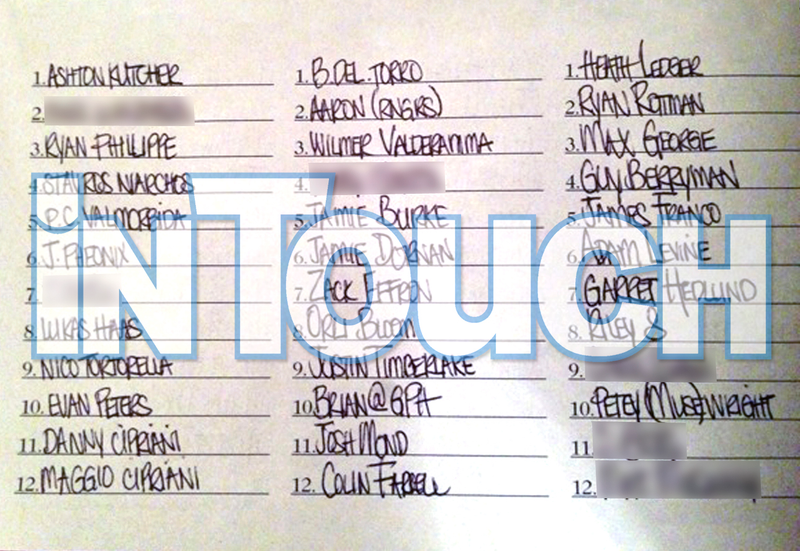 1. ASHTON KUTCHER
2.
3. RYAN PHILIPPE
4. STAVROS NIARCHOS
5. P.C. VALMORBIDA
6. J. PHEONIX
7.
8. LUKAS HAAS
9. NICO TORTORELLA
10. EVAN PETERS
11. DANNY CIPRIANI
12. MAGGIO CIPRIANI
1. B. DEL TORRO
2. AARON (RNGRS)
3. WILMER VALDERAMMA
4.
5. JAMIE BURKE
6. JAMIE DORNAN
7. ZACK EFFRON
8. ORLI BLOOM
9. JUSTIN TIMBERLAKE
10. BRIAN @ GPH
11. JOSH MOND
12. COLIN FARRELL
1. HEATH LEDGER
2. RYAN ROTTMAN
3. MAX GEORGE
4. GUY BERRYMAN
5. JAMES FRANCO
6. ADAM LEVINE
7. GARRET HEDLUND
8. RILEY S
9.
10. PETEY (MUSE) WRIGHT
11.
12.
INTOUCH